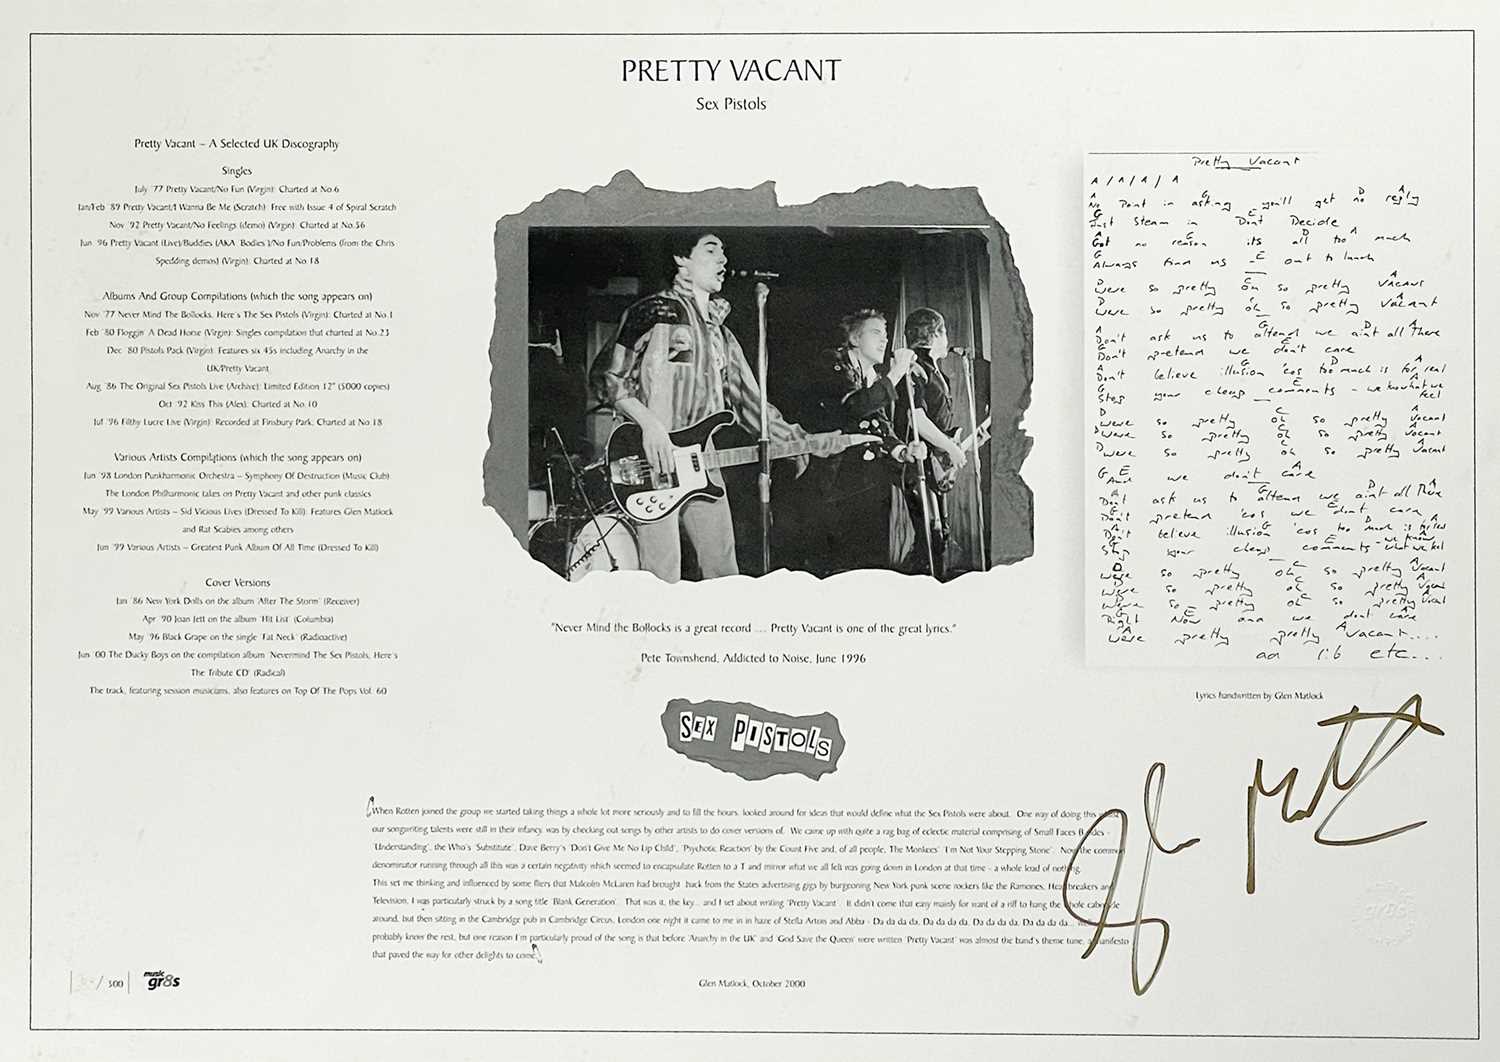 PRETTY VACANT
Sex Pistols
Pretty Vacant – A Selected UK Discography
Singles
July '77 Pretty Vacant/No Fun (Virgin): Charted at No.6
Jan/Feb '89 Pretty Vacant/I Wanna Be Me (Scratch): Free with Issue 4 of Spiral Scratch
Nov '92 Pretty Vacant/No Feelings (demo) (Virgin): Charted at No.56
Jun '96 Pretty Vacant (Live)/Buddies (AKA 'Bodies')/No Fun/Problems (from the Chris
Spedding demos) (Virgin): Charted at No 18
Albums And Group Compilations (which the song appears on)
Nov '77 Never Mind The Bollocks, Here's The Sex Pistols (Virgin): Charted at No.1
Feb '80 Floggin' A Dead Horse (Virgin): Singles compilation that charted at No.23
Dec '80 Pistols Pack (Virgin): Features six 45s including Anarchy in the
UK/Pretty Vacant
Aug '86 The Original Sex Pistols Live (Archive): Limited Edition 12" (5000 copies)
Oct '92 Kiss This (Alex): Charted at No.10
Jul '96 Filthy Lucre Live (Virgin): Recorded at Finsbury Park, Charted at No 18
Various Artists Compilations (which the song appears on)
Jun '98 London Punkharmonic Orchestra – Symphony Of Destruction (Music Club)
The London Philharmonic takes on Pretty Vacant and other punk classics
May '99 Various Artists – Sid Vicious Lives (Dressed To Kill): Features Glen Matlock
and Rat Scabies among others
Jun '99 Various Artists – Greatest Punk Album Of All Time (Dressed To Kill)
Cover Versions
Jan '86 New York Dolls on the album 'After The Storm' (Receiver)
Apr '90 Joan Jett on the album 'Hit List' (Columbia)
May '96 Black Grape on the single 'Fat Neck' (Radioactive)
Jun '00 The Ducky Boys on the compilation album 'Nevermind The Sex Pistols, Here's
The Tribute CD' (Radical)
The track, featuring session musicians, also features on Top Of The Pops Vol. 60
"Never Mind the Bollocks is a great record .... Pretty Vacant is one of the great lyrics."
Pete Townshend, Addicted to Noise, June 1996
SEX PISTOLS
Pretty Vacant
A / A / A / A
A G D A
No Point in asking you'll get no reply
G E
Just Steam in Don't Decide
A G D A
Got no reason its all too much
G E
Always find us out to lunch
D C A
Were so pretty oh so pretty vacant
D C A
Were so pretty oh so pretty vacant
A G D A
Don't ask us to attend we aint all there
G E
Don't pretend we don't care
A G D A
Don't believe illusion 'cos too much is for real
G E
Stop your cheap comments – we know what we feel
D C A
Were so pretty oh so pretty vacant
D C A
Were so pretty oh so pretty vacant
D C A
Were so pretty oh so pretty vacant
G E A
And we don't care
Don't ask us to attend we aint all there
Don't pretend 'cos we dont care
Don't believe illusion 'cos too much is for real
Stop your cheap comments – we know what we feel
Were so pretty oh so pretty vacant
Were so pretty oh so pretty vacant
Were so pretty oh so pretty vacant
Right Now and we dont care
Were pretty pretty vacant....
ad lib etc...
Lyrics handwritten by Glen Matlock
Glen Matlock
When Rotten joined the group we started taking things a whole lot more seriously and to fill the hours, looked around for ideas that would define what the Sex Pistols were about. One way of doing this whilst
our songwriting talents were still in their infancy, was by checking out songs by other artists to do cover versions of. We came up with quite a rag bag of eclectic material comprising of Small Faces B sides -
'Understanding', the Who's 'Substitute', Dave Berry's 'Don't Give Me No Lip Child', 'Psychotic Reaction' by the Count Five and, of all people, The Monkees' 'I'm Not Your Stepping Stone'. Now the common
denominator running through all this was a certain negativity which seemed to encapsulate Rotten to a T and mirror what we all felt was going down in London at that time - a whole load of nothing.
This set me thinking and influenced by some fliers that Malcolm McLaren had brought back from the States advertising gigs by burgeoning New York punk scene rockers like the Ramones, Heartbreakers and
Television, I was particularly struck by a song title 'Blank Generation'. That was it, the key... and I set about writing 'Pretty Vacant'. It didn't come that easy mainly for want of a riff to hang the whole caboodle
around, but then sitting in the Cambridge pub in Cambridge Circus, London one night it came to me in in haze of Stella Artois and Abba - Da da da da, Da da da da, Da da da da, Da da da da... well you
probably know the rest, but one reason I'm particularly proud of the song is that before 'Anarchy in the UK' and 'God Save the Queen' were written 'Pretty Vacant' was almost the band's theme tune, a manifesto
that paved the way for other delights to come.
Glen Matlock, October 2000
/ 500
music
gr8s
gr8s